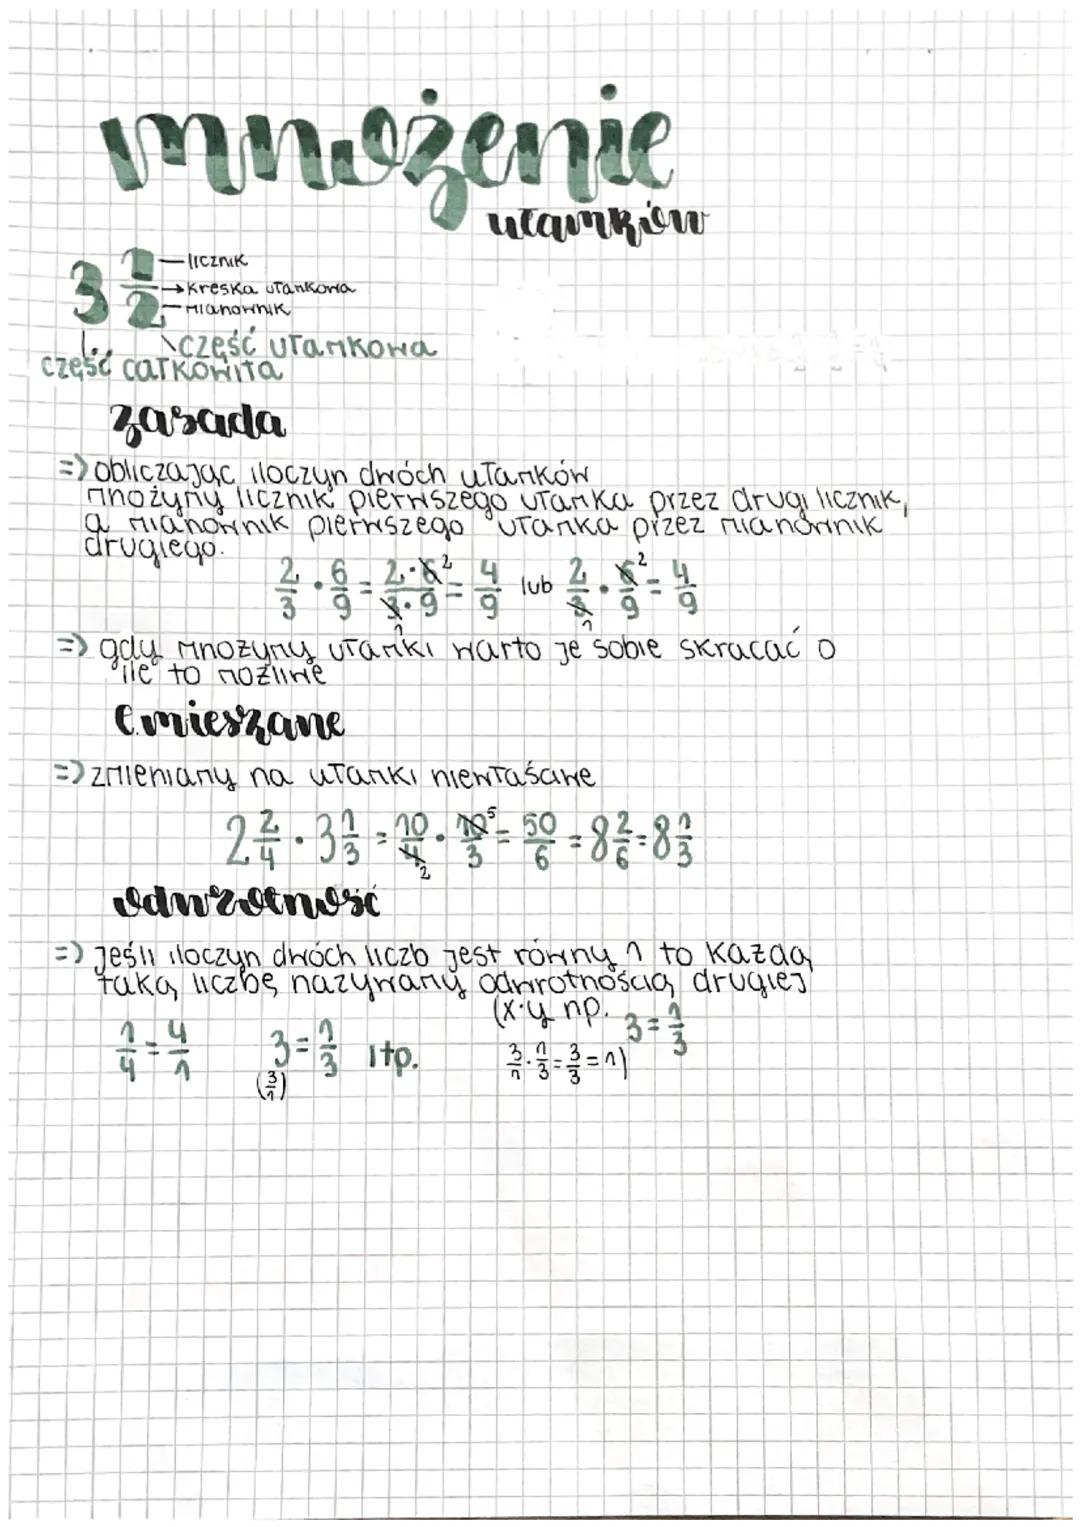 mnożenie
ułamków
3 1/2
licznik
kreska ułamkowa
mianownik
część ułamkowa
część całkowita
zasada
=> obliczając iloczyn dwóch ułamków
mnożymy licznik pierwszego ułamka przez drugi licznik,
a mianownik pierwszego ułamka przez mianownik
drugiego.
2/3 · 6/9 = 2·6²/3₁·9 = 4/9 lub 2/3₁ · 6²/9 = 4/9
=> gdy mnożymy ułamki warto je sobie skracać o
ile to możliwe
l.mieszane
=> zmieniamy na ułamki niewłaściwe
2 2/4 · 3 1/3 = 10/4₂ · 10⁵/3 = 50/6 = 8 2/6 = 8 1/3
odwrotność
=> jeśli iloczyn dwóch liczb jest równy 1 to każdą
taką liczbę nazywamy odwrotnością drugiej
(x·y np. 3 = 1/3
1/4 = 4/1 3 = 1/3 itp. 3/1 · 1/3 = 3/3 = 1)
(3/1)